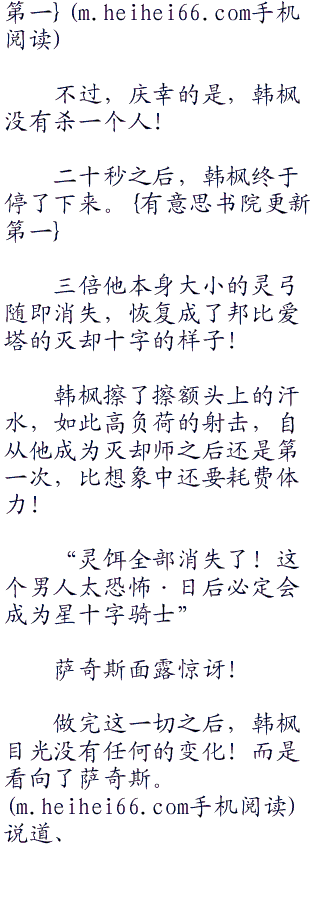 第一}(m.heihei66.com手机
阅读)
不过，庆幸的是，韩枫
没有杀一个人！
二十秒之后，韩枫终于
停了下来。{有意思书院更新
第一}
三倍他本身大小的灵弓
随即消失，恢复成了邦比爱
塔的灭却十字的样子！
韩枫擦了擦额头上的汗
水，如此高负荷的射击，自
从他成为灭却师之后还是第
一次，比想象中还要耗费体
力！
“灵饵全部消失了！这
个男人太恐怖·日后必定会
成为星十字骑士”
萨奇斯面露惊讶！
做完这一切之后，韩枫
目光没有任何的变化！而是
看向了萨奇斯。
(m.heihei66.com手机阅读)
说道、